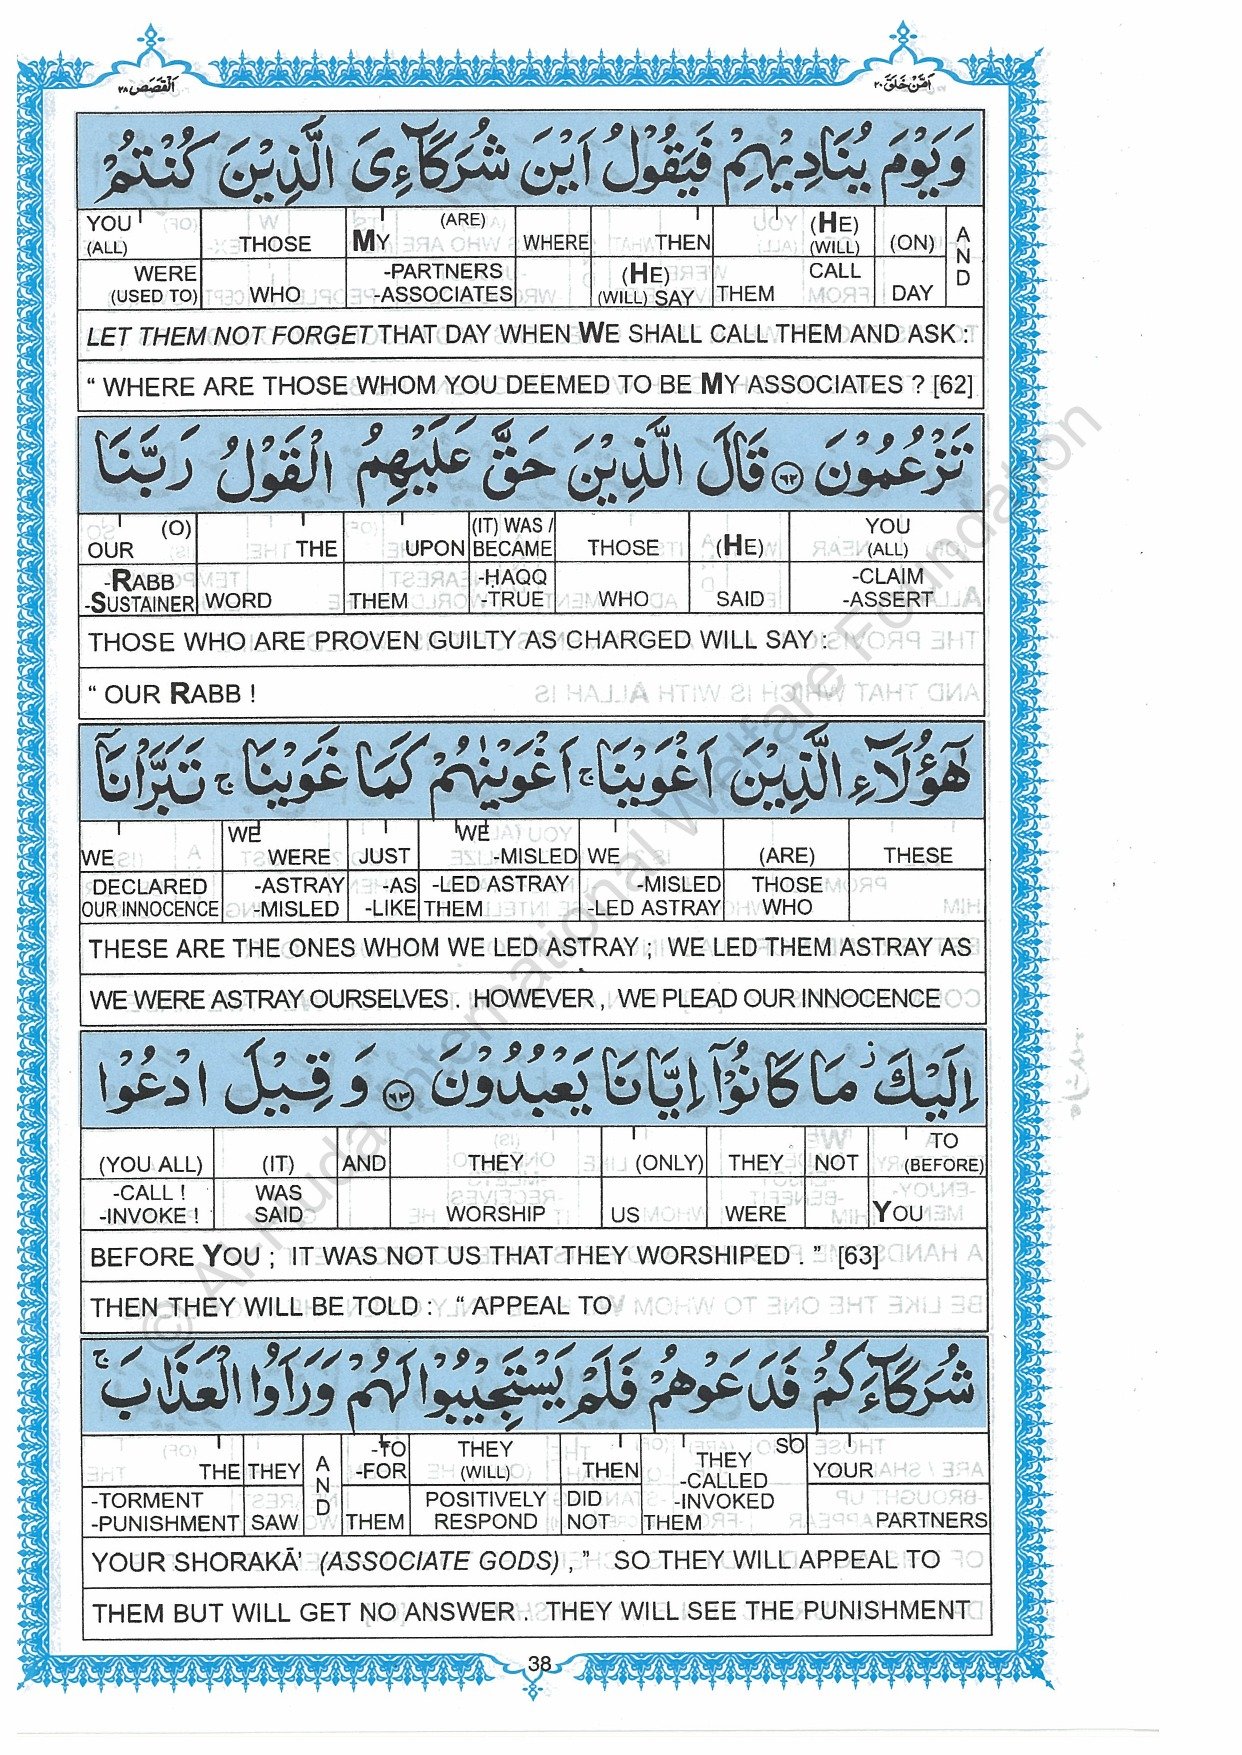 القصص ٢٨
امن خلق ٢٠
وَيَوْمَ يُنَادِيْهِمْ فَيَقُوْلُ اَيْنَ شُرَكَآءِىَ الَّذِيْنَ كُنْتُمْ
YOU (ALL) THOSE MY (ARE) WHERE THEN (HE) (WILL) (ON) AND
WERE (USED TO) WHO -PARTNERS -ASSOCIATES (HE) (WILL) SAY THEM CALL DAY
LET THEM NOT FORGET THAT DAY WHEN WE SHALL CALL THEM AND ASK :
“ WHERE ARE THOSE WHOM YOU DEEMED TO BE MY ASSOCIATES ? [62]
تَزْعُمُوْنَ ۶۲ قَالَ الَّذِيْنَ حَقَّ عَلَيْهِمُ الْقَوْلُ رَبَّنَا
OUR (O) THE UPON (IT) WAS / BECAME THOSE (HE) YOU (ALL)
-RABB -SUSTAINER WORD THEM -HAQQ -TRUE WHO SAID -CLAIM -ASSERT
THOSE WHO ARE PROVEN GUILTY AS CHARGED WILL SAY :
“ OUR RABB !
هٰٓؤُلَآءِ الَّذِيْنَ اَغْوَيْنَا ۚ اَغْوَيْنٰهُمْ كَمَا غَوَيْنَا ۚ تَبَرَّاْنَآ
WE WE WERE JUST WE -MISLED WE (ARE) THESE
DECLARED OUR INNOCENCE -ASTRAY -MISLED -AS -LIKE -LED ASTRAY THEM -MISLED -LED ASTRAY THOSE WHO
THESE ARE THE ONES WHOM WE LED ASTRAY ; WE LED THEM ASTRAY AS
WE WERE ASTRAY OURSELVES . HOWEVER , WE PLEAD OUR INNOCENCE
اِلَيْكَ ۡ مَا كَانُوْٓا اِيَّانَا يَعْبُدُوْنَ ۶۳ وَقِيْلَ ادْعُوْا
(YOU ALL) (IT) AND THEY (ONLY) THEY NOT TO (BEFORE)
-CALL ! -INVOKE ! WAS SAID WORSHIP US WERE YOU
BEFORE YOU ; IT WAS NOT US THAT THEY WORSHIPED . ” [63]
THEN THEY WILL BE TOLD : “ APPEAL TO
شُرَكَآءَكُمْ فَدَعَوْهُمْ فَلَمْ يَسْتَجِيْبُوْا لَهُمْ وَرَاَوُا الْعَذَابَ ۚ
THE THEY AND -TO -FOR THEY (WILL) THEN THEY -CALLED -INVOKED THEM SO YOUR
-TORMENT -PUNISHMENT SAW THEM POSITIVELY RESPOND DID NOT PARTNERS
YOUR SHORAKĀ’ (ASSOCIATE GODS) , ” SO THEY WILL APPEAL TO
THEM BUT WILL GET NO ANSWER . THEY WILL SEE THE PUNISHMENT
38
© Al-Huda International Welfare Foundation